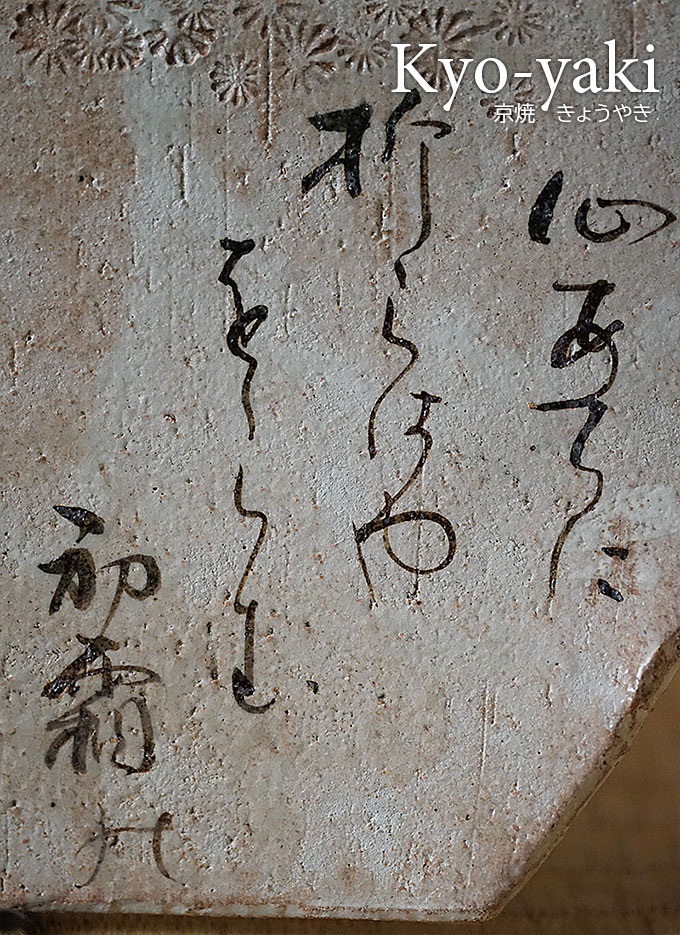 Kyo-yaki
京焼 きょうやき
心あてに
折らはや
をらむ
初霜の